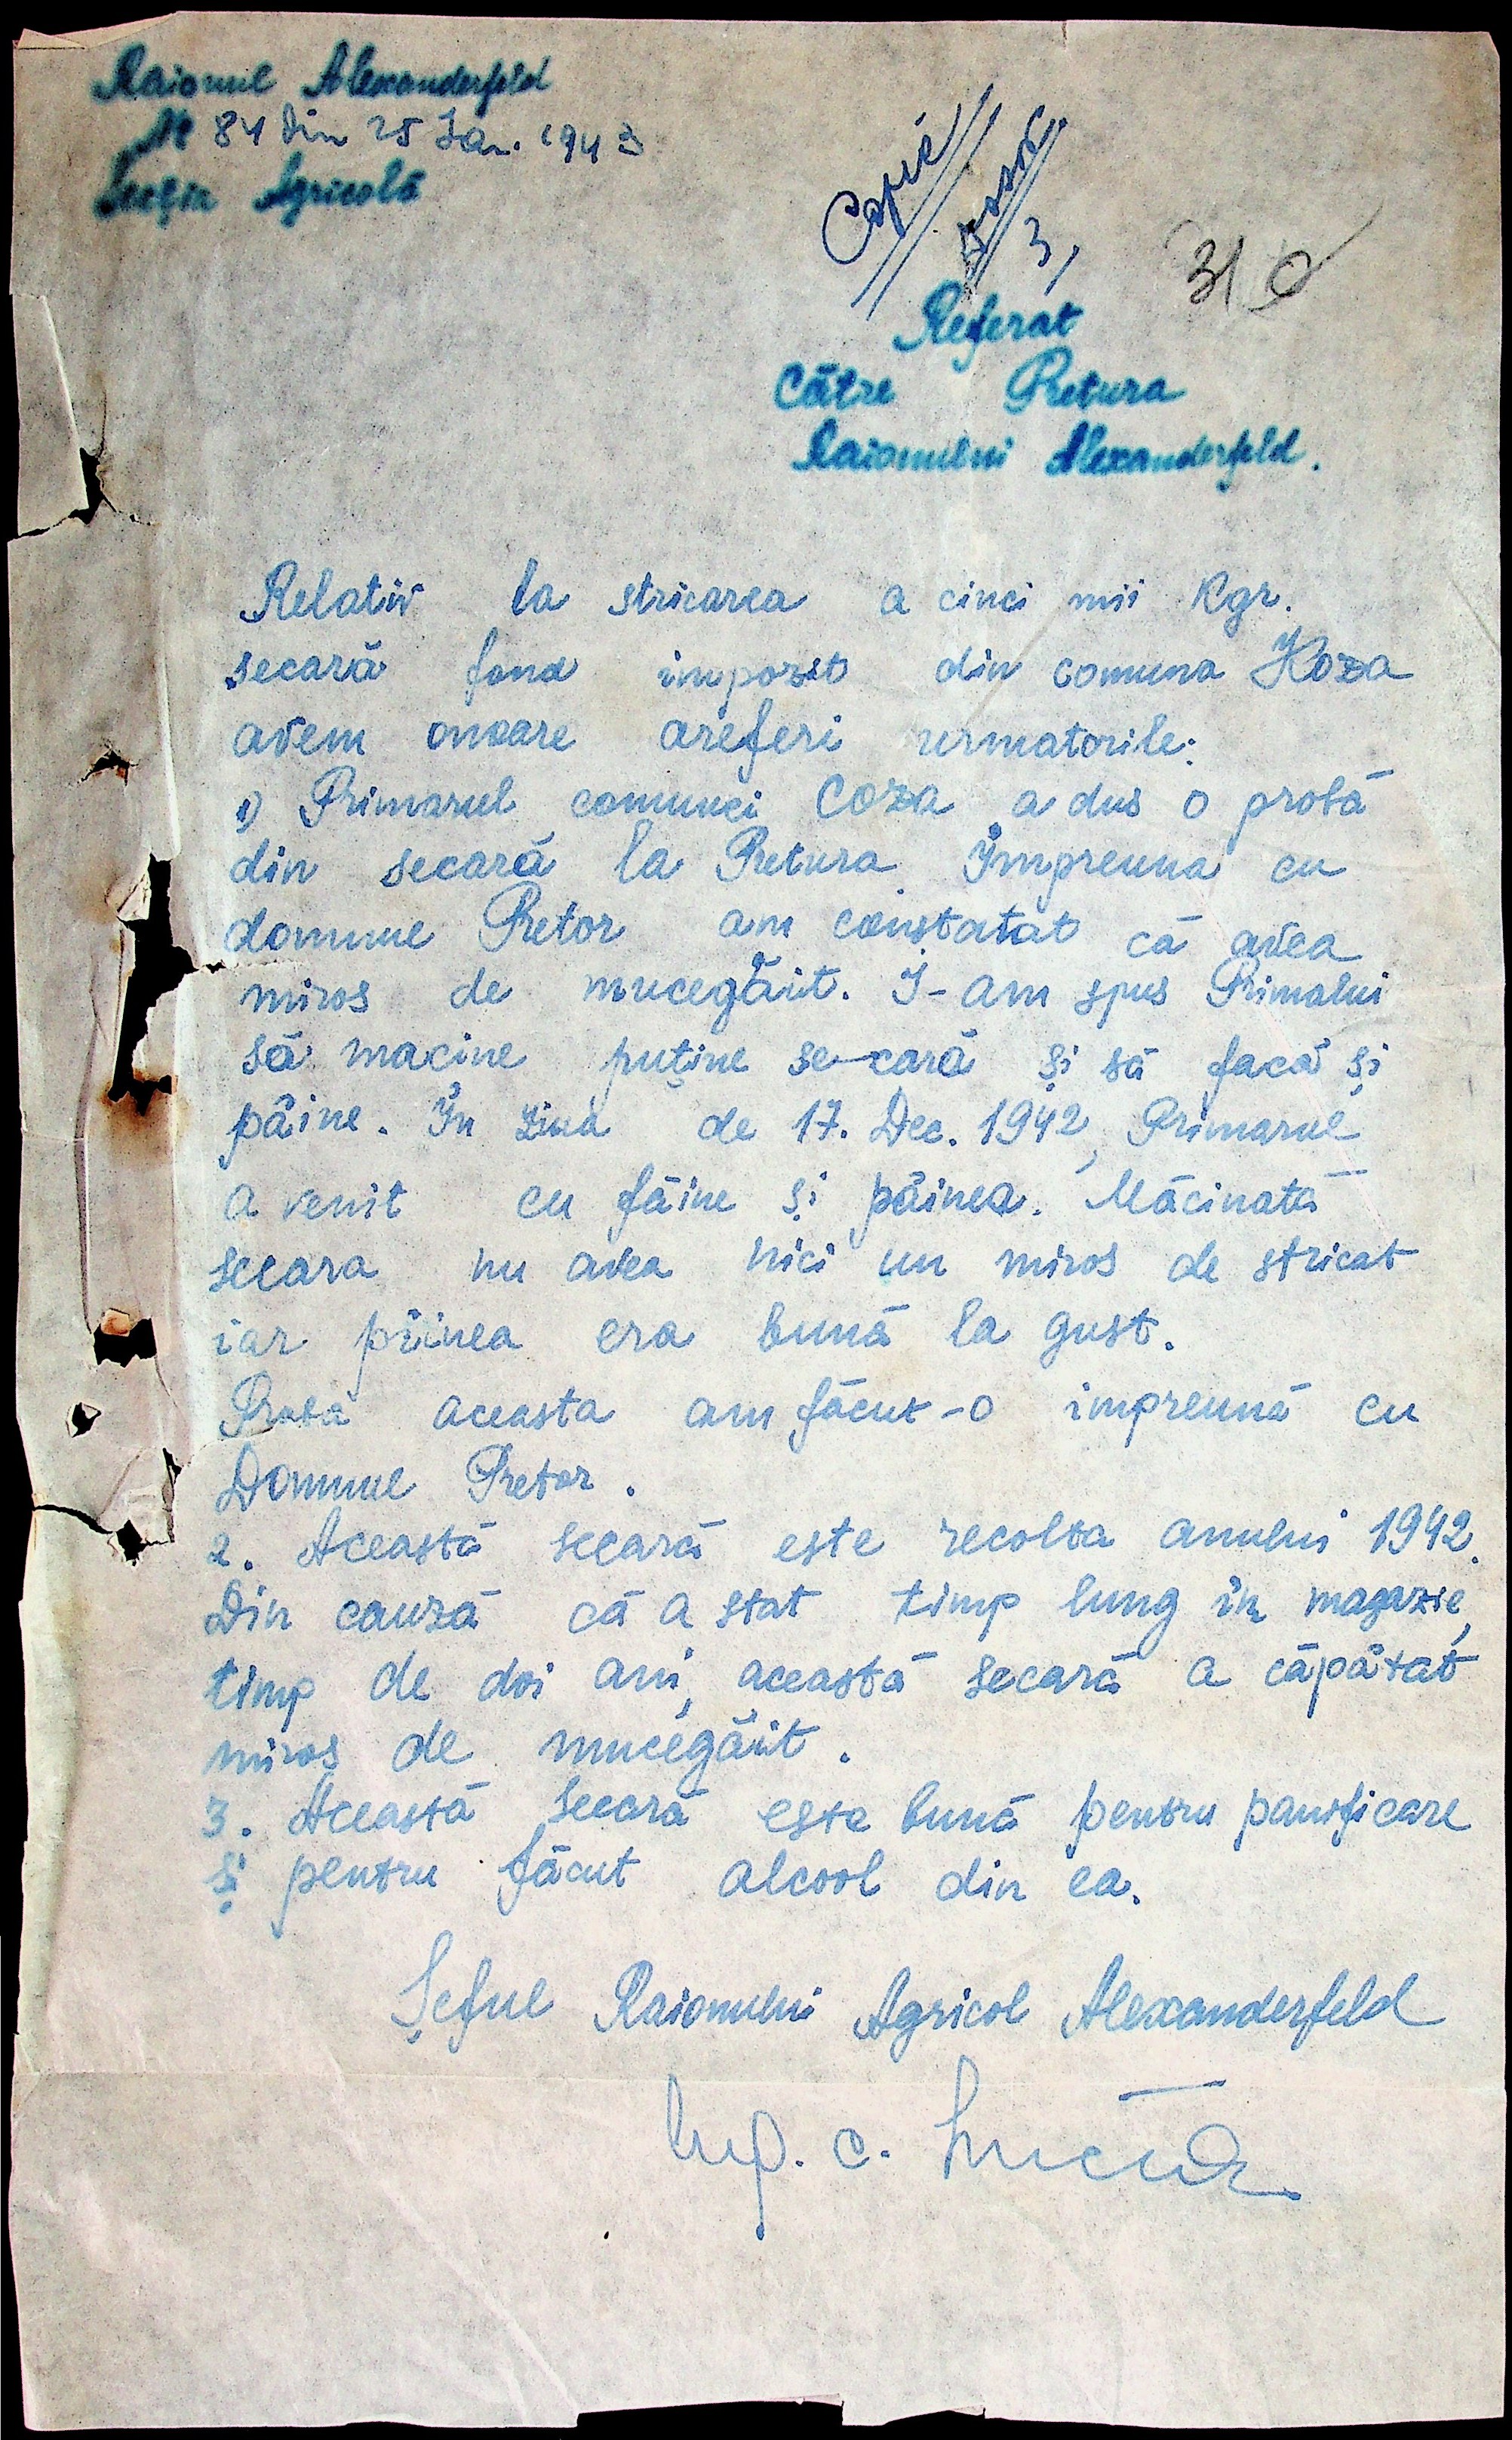 Raionul Alexanderfeld
№ 84 din 25 Ian. 1943
Secția Agricolă
Copie
3,
310
Referat
Către Pretura
Raionului Alexanderfeld.
Relativ la stricarea a cinci mii Kgr.
secară fond impozit din comuna Koza
avem onoare areferi urmatorile:
1) Primarul comunei Coza a dus o probă
din secară la Pretura. Împreuna cu
domnul Pretor am constatat că avea
miros de mucegăit. I-am spus Primalui
să macine puține se-cară și să facă și
pâine. În ziua de 17. Dec. 1942, Primarul
a venit cu făine și pâinea. Măcinată
secara nu avea nici un miros de stricat
iar pîinea era bună la gust.
Proba aceasta am făcut-o impreună cu
Domnul Pretor.
2. Această secară este recolta anului 1942.
Din cauză că a stat timp lung în magazie,
timp de doi ani, această secară a căpătat
miros de mucegăit.
3. Această secară este bună pentru panificare
și pentru făcut alcool din ea.
Șeful Raionului Agricol Alexanderfeld
c.